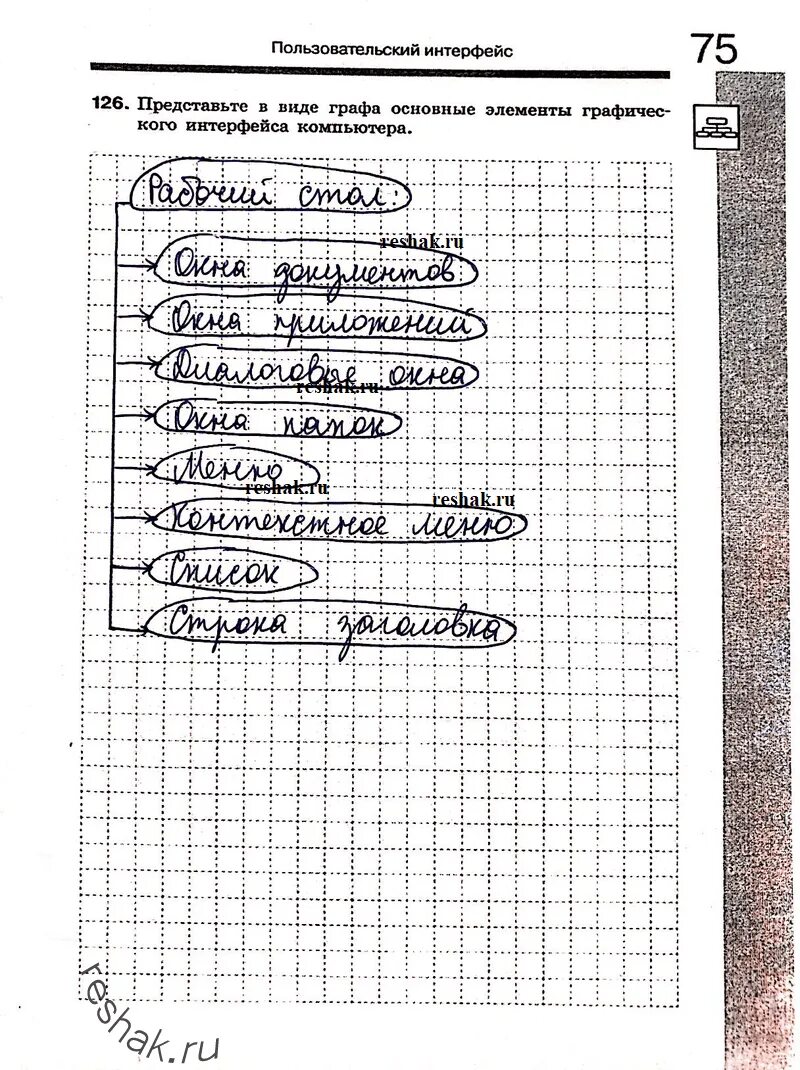 Пользовательский интерфейс
75
126. Представьте в виде графа основные элементы графичес-
кого интерфейса компьютера.
Рабочий стол:
reshak.ru
Окна документов
Окна приложений
Диалоговые окна
reshak.ru
Окна папок
Меню
reshak.ru
reshak.ru
Контекстное меню
Список
Строка заголовка
reshak.ru